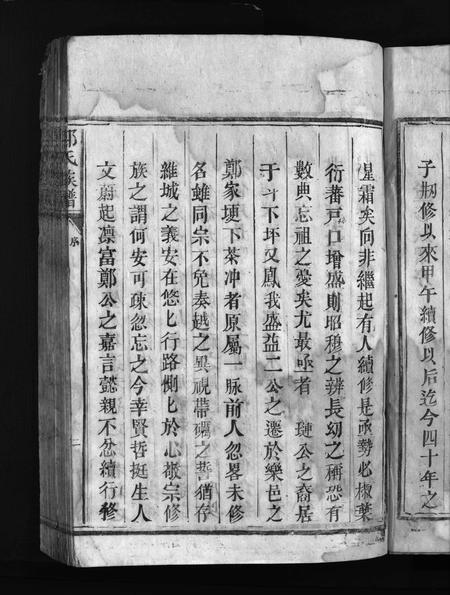 子刱修以來甲午續修以后迄今四十年之
星霜矣向非繼起有人續修是亟勢必椒葉
衍蕃戸口增盛則昭穆之辨長幼之稱恐有
數典忘祖之憂矣尤最亟者 璉公之裔居
于斗下坪又鳳我盛益二公之遷於樂邑之
鄭家㙁下茶冲者原屬一脉前人忽畧未修
名雖同宗不免秦越之異視帶礪之誓猶存
維城之義安在悠匕行路惻匕於心敬宗修
族之謂何安可疎忽忘之今幸賢哲挺生人
文蔚起凛富鄭公之嘉言懿親不忿續行修
氏族譜
序
二